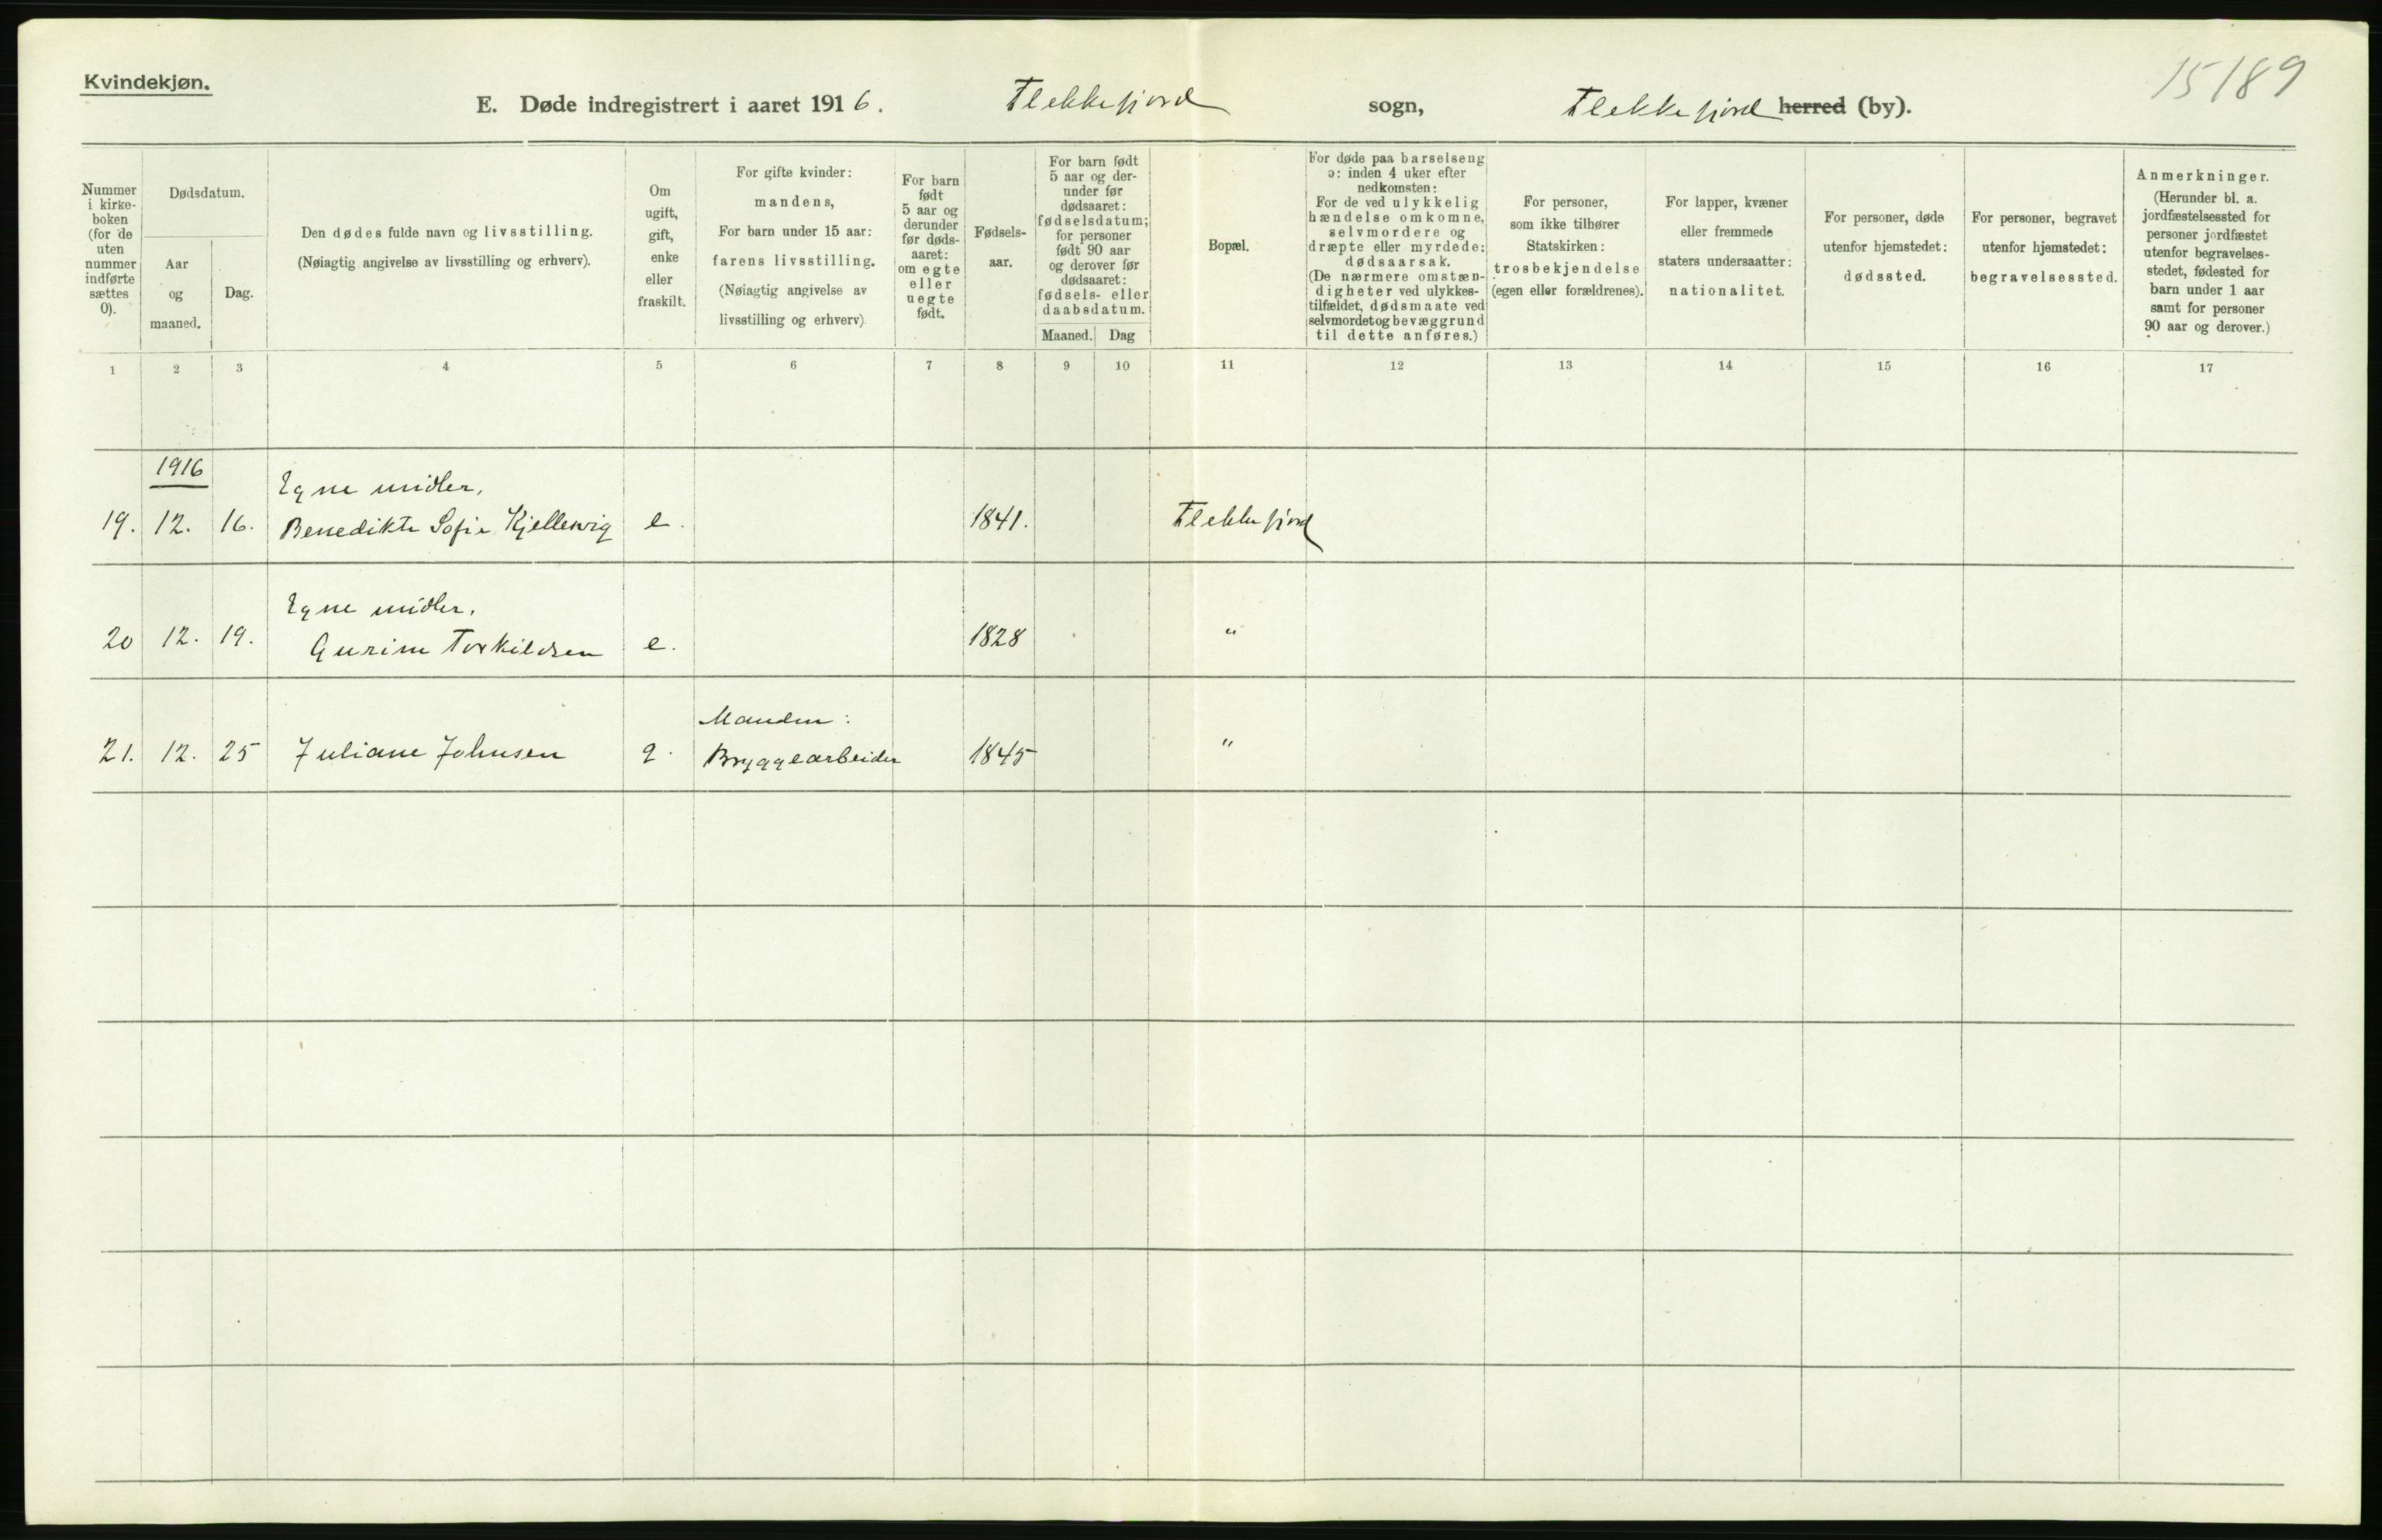 Kvindekjøn.
15189
E. Døde indregistrert i aaret 1916. Flekkefjord sogn, Flekkefjord herred (by).
Nummer
i kirke-
boken
(for de
uten
nummer
indførte
sættes
0).
Dødsdatum.
Aar
og
maaned.
Dag.
Den dødes fulde navn og livsstilling.
(Nøiagtig angivelse av livsstilling og erhverv).
Om
ugift,
gift,
enke
eller
fraskilt.
For gifte kvinder:
mandens,
For barn under 15 aar:
farens livsstilling.
(Nøiagtig angivelse av
livsstilling og erhverv).
For barn
født
5 aar og
derunder
før døds-
aaret:
om egte
eller
uegte
født.
Fødsels-
aar.
For barn født
5 aar og der-
under før
dødsaaret:
fødselsdatum;
for personer
født 90 aar
og derover før
dødsaaret:
fødsels- eller
daabsdatum.
Maaned. Dag
Bopæl.
For døde paa barselseng
ɔ: inden 4 uker efter
nedkomsten:
For de ved ulykkelig
hændelse omkomne,
selvmordere og
dræpte eller myrdede:
dødsaarsak.
(De nærmere omstæn-
digheter ved ulykkes-
tilfældet, dødsmaate ved
selvmordet og bevæggrund
til dette anføres.)
For personer,
som ikke tilhører
Statskirken:
trosbekjendelse
(egen eller forældrenes).
For lapper, kvæner
eller fremmede
staters undersaatter:
nationalitet.
For personer, døde
utenfor hjemstedet:
dødssted.
For personer, begravet
utenfor hjemstedet:
begravelsessted.
Anmerkninger.
(Herunder bl. a.
jordfæstelsessted for
personer jordfæstet
utenfor begravelses-
stedet, fødested for
barn under 1 aar
samt for personer
90 aar og derover.)
1 2 3 4 5 6 7 8 9 10 11 12 13 14 15 16 17
1916
Egne midler,
19. 12. 16. Benedikte Sofie Kjellevig e. 1841. Flekkefjord
Egne midler.
20 12. 19. Gurine Torkildsen e. 1828 "
Manden:
21. 12. 25 Juliane Johnsen g. Bryggearbeider 1845 "